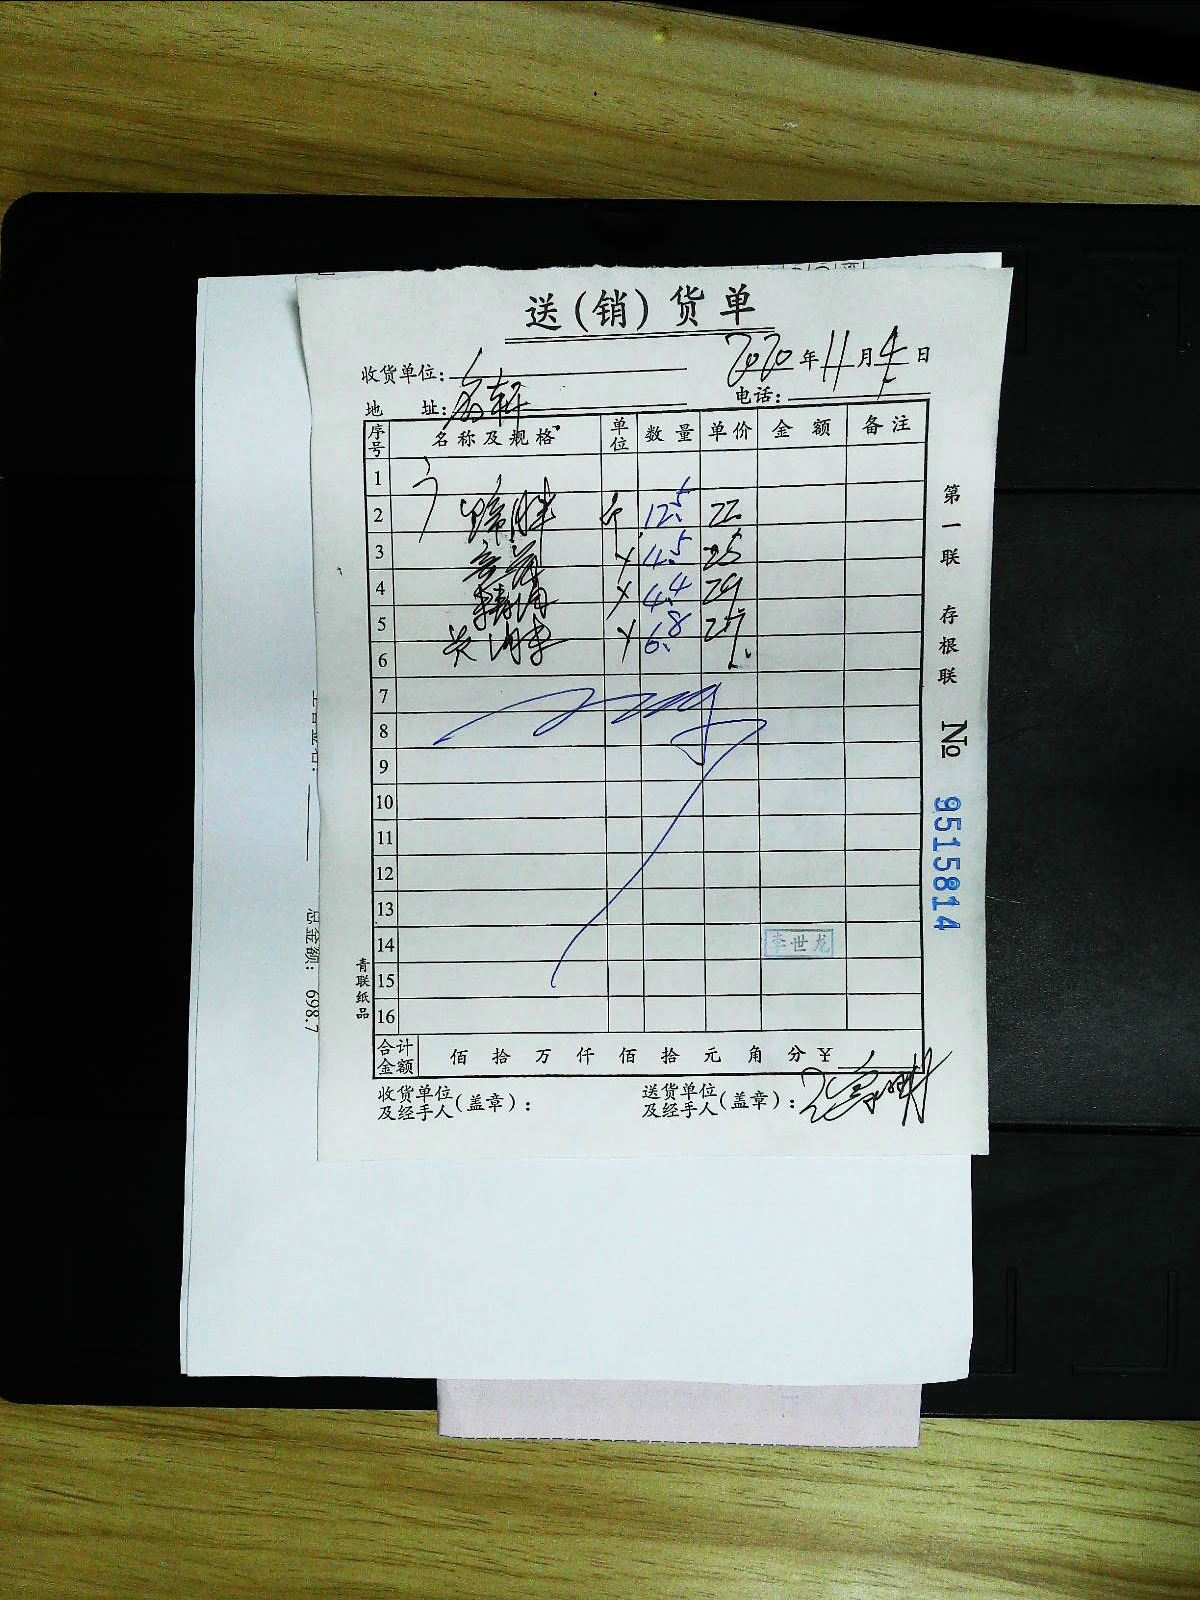 送(销)货单
收货单位:
2020年11月4日
地 址: 名轩
电话:
序号 名称及规格 单位 数量 单价 金额 备注
1
2 斤 12.5 22
3 4.5 25
4 4.4 29
5 6.8 27
6
7
8
9
10
11
12
13
14 李世龙
15
16
合计金额 佰 拾 万 仟 佰 拾 元 角 分 ¥
收货单位及经手人(盖章):
送货单位及经手人(盖章):
第一联 存根联 № 9515814
青联纸品
总金额: 698.7